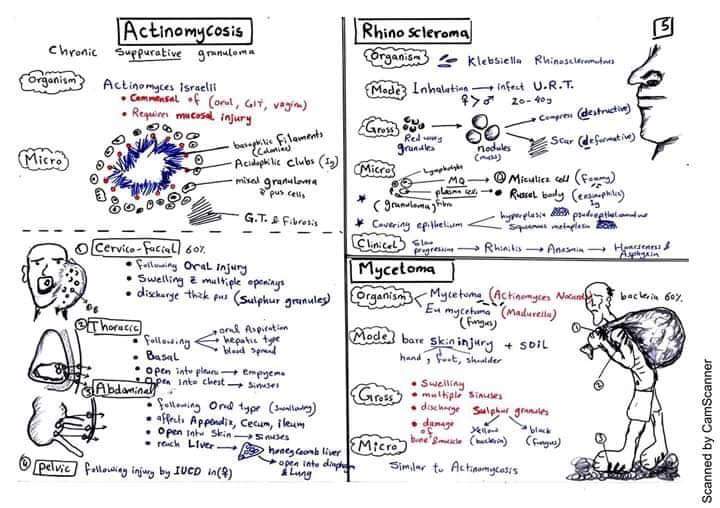 Actinomycosis
Chronic Suppurative granuloma
Organism
Actinomyces israelli
• Commensal of (oral, GIT, vagina)
• Requires mucosal injury
Micro
basophilic filaments
(Colonies)
Acidophilic clubs (Ig)
mixed granuloma
& pus cells
G.T. & Fibrosis
① Cervico-facial 60%
• following Oral injury
• Swelling c̄ multiple openings
• discharge thick pus (Sulphur granules)
② Thoracic
• following
oral Aspiration
hepatic type
blood spread
• Basal
• Open into pleura → empyema
• Open into chest → sinuses
③ Abdominal
• following Oral type (swallowing)
• affects Appendix, Cecum, ileum
• Open into Skin → sinuses
• reach Liver → honeycomb liver
→ open into diaphram
& Lung
④ pelvic following injury by IUCD in (♀)
Rhinoscleroma
5
Organism
Klebsiella Rhinoscleromatous
Mode
Inhalation → infect U.R.T.
♀ > ♂ 20-40y
Gross
Red waxy
granules
nodules
(mass)
Compress (destructive)
Scar (deformative)
Micro
lymphocyte
MQ → Miculicz cell (foamy)
plasma cell → Russel body (eosinophilic)
Ig
* (granuloma) Fibro
* Covering epithelium
hyperplasia
Squamous metaplasia
Clinical
Slow
progression → Rhinitis → Anosmia → Hoarseness &
Asphyxia
Mycetoma
Organism
Mycetoma (Actinomyces Nocardia) bacteria 60%
Eu mycetoma (Madurella)
(fungus)
Mode
bare skin injury + soil
hand, foot, shoulder
Gross
• Swelling
• multiple Sinuses
• discharge Sulphur granules
yellow
(bacteria)
black
(fungus)
• damage
of
bone & muscle
Micro
Similar to Actinomycosis
①
②
③
Scanned by CamScanner